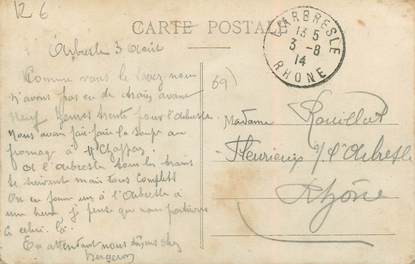 126
CARTE POSTALE
L'ARBRESLE
13 5
3 -8
14
RHONE
69)
Arbresle 3 Août
Comme vous le voyez nous
n'avons pas eu de train avant
neuf heures trente pour l'Arbresle
nous avons fait la soupe au
fromage à
A l'Arbresle tous les trains
se suivent mais tous complets
On en forme un à l'Arbresle à
une heure, je pense que nous partirons
à celui là.
En attendant nous chez
Bergeron
Madame Rouillet
Fleurieux s/ l'Arbresle
Rhône